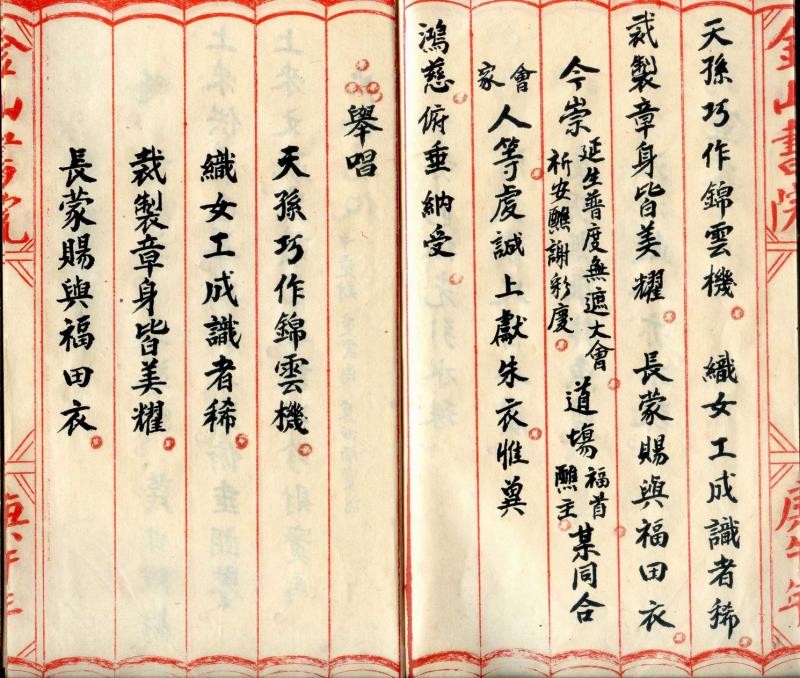 金山書院
庚午年
天孫巧作錦雲機　織女工成識者稀
裁製章身皆美耀　長蒙賜與福田衣
今崇
延生普度無遮大會
祈安醮謝彩慶
道場
福首
醮主
某同合
會
家
人等虔誠上獻朱衣惟冀
鴻慈俯垂納受
舉唱
天孫巧作錦雲機
織女工成識者稀
裁製章身皆美耀
長蒙賜與福田衣
金山書院
庚午年